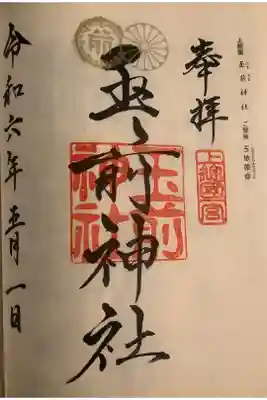 上総国 玉前神社 ご祭神 玉依姫命
奉拝
上総國一宮
玉前神社
玉前神社
令和六年五月一日